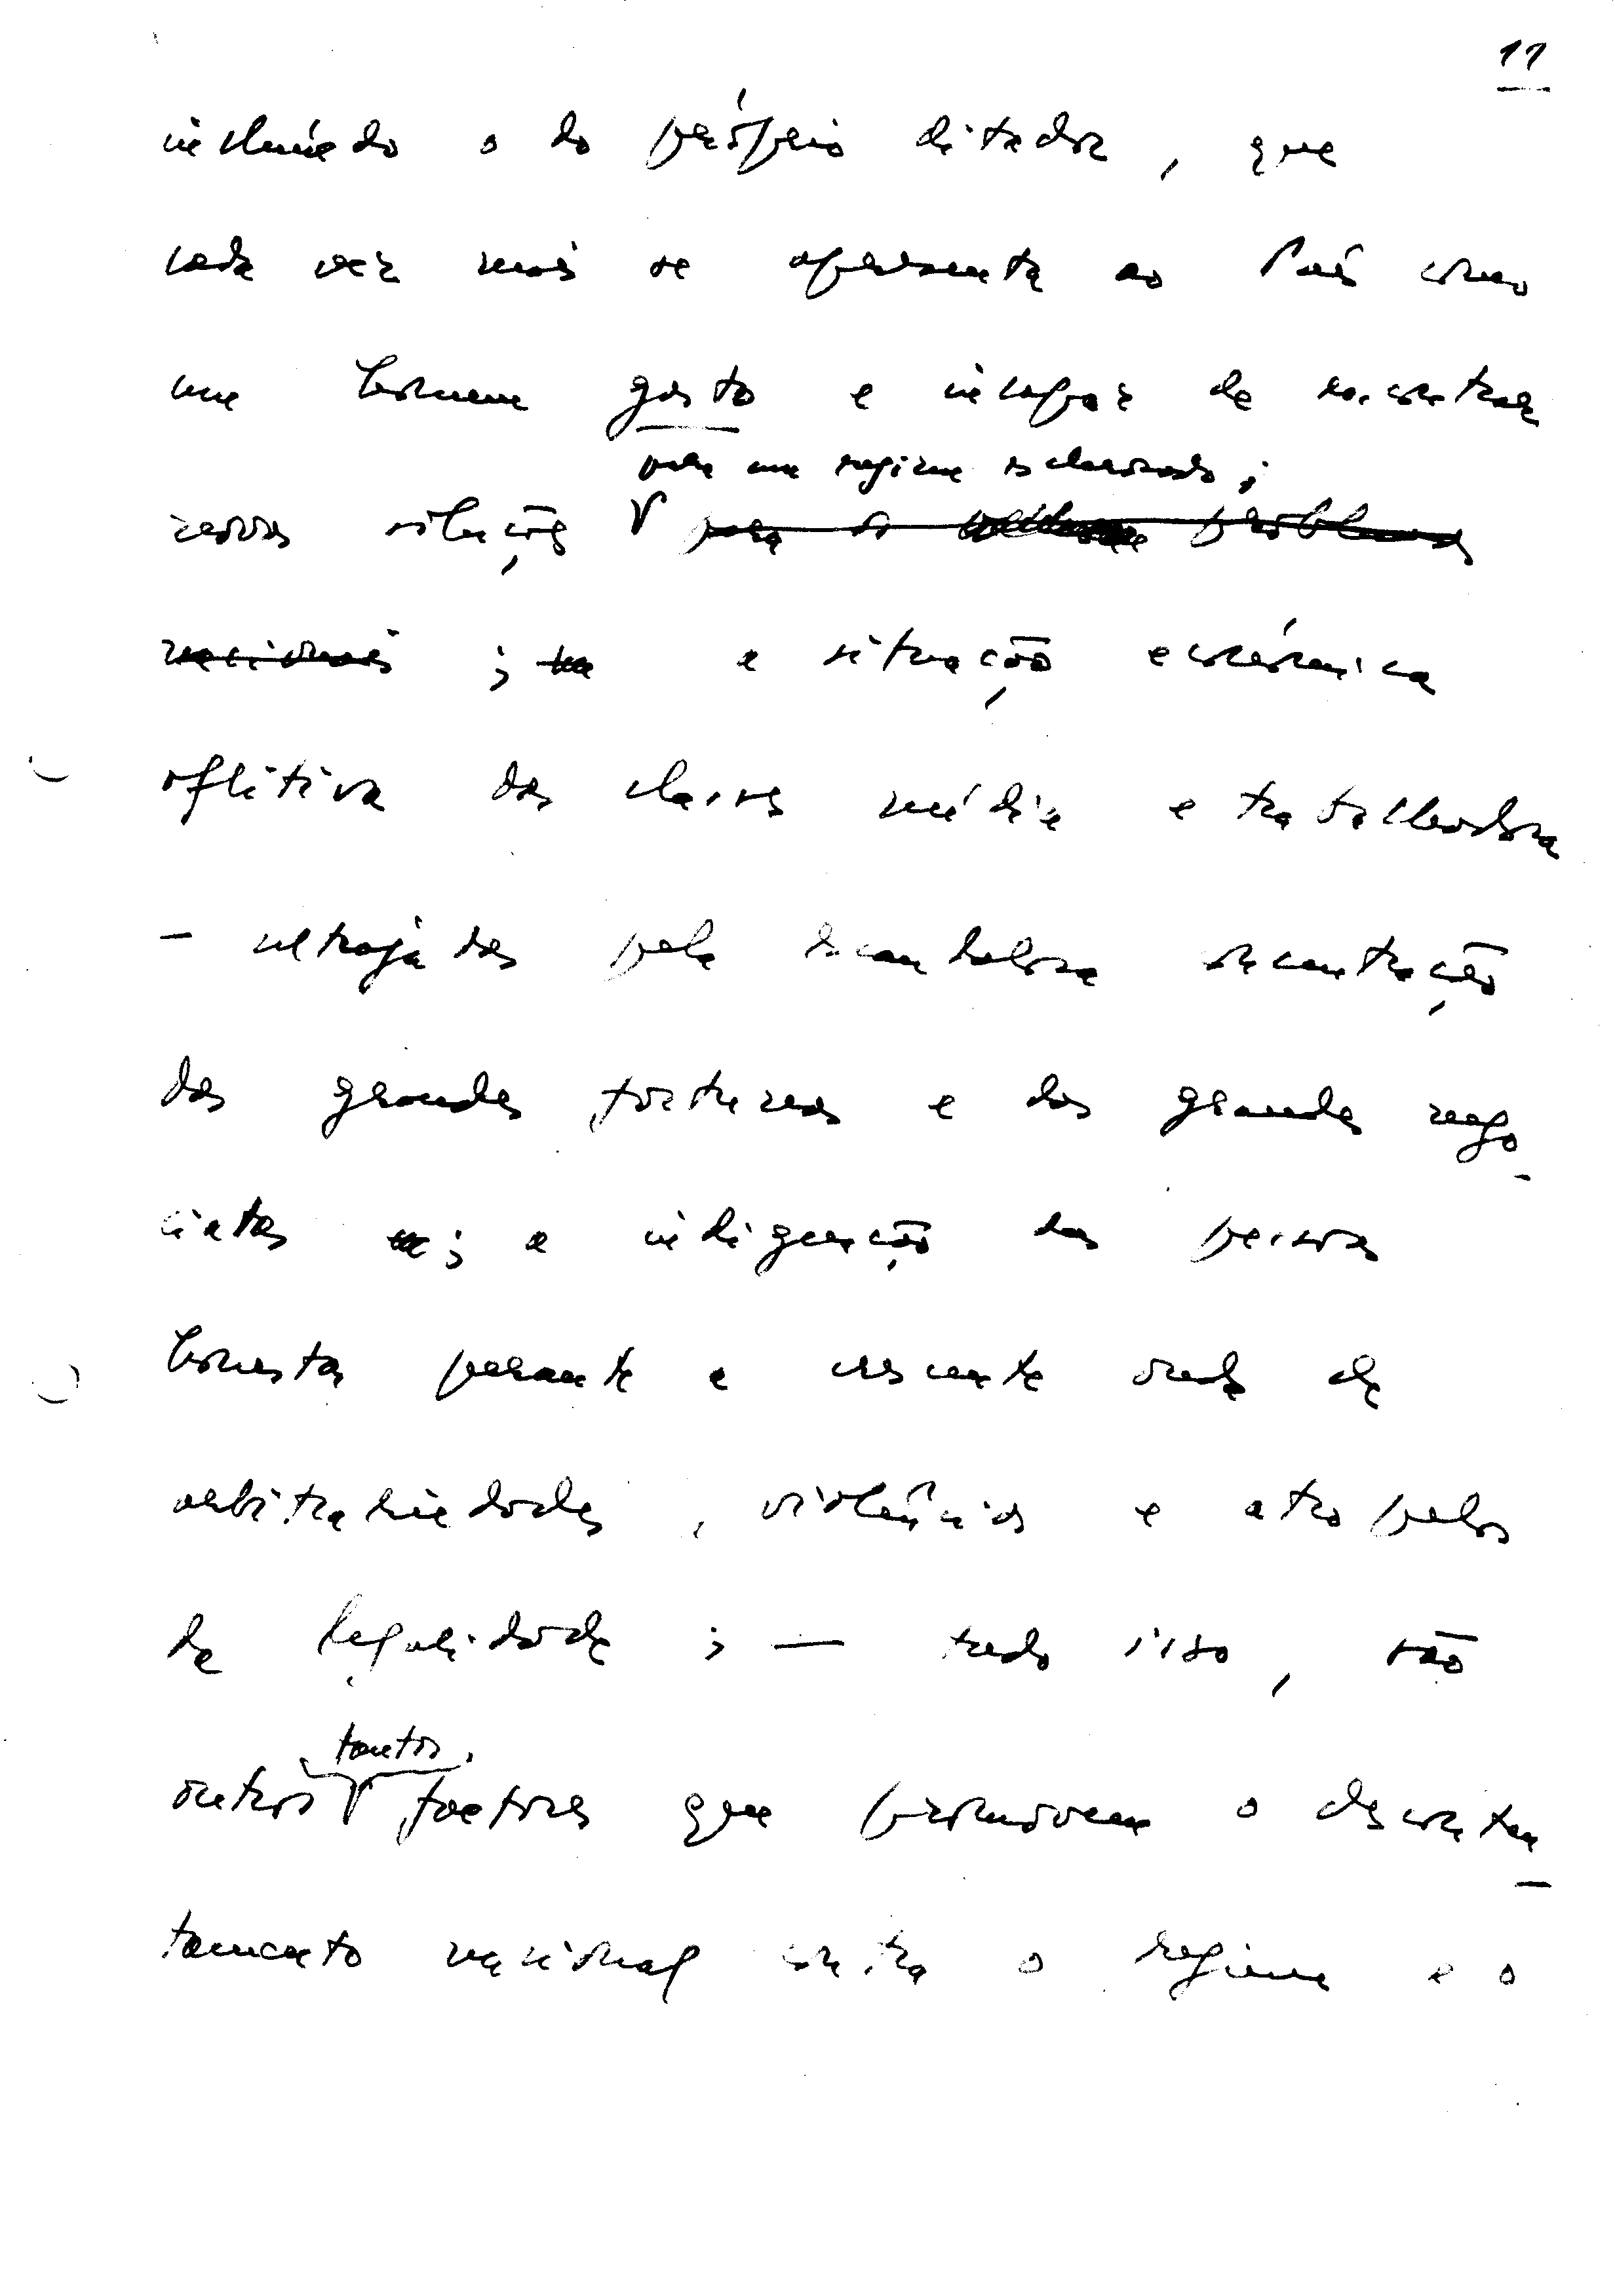 11
incluindo o do próprio ditador, que
cada vez mais se apresenta ao País como
um homem gasto e incapaz de encontrar
para um regime esclerosado;
novas soluções para os problemas
nacionais; a situação económica
aflitiva das classes média e trabalhadora
- ultrajadas pela escandalosa concentração
das grandes fortunas e dos grandes nego-
ciatas; a indignação das pessoas
honestas perante a crescente onda de
arbitrariedades, violências e atropelos
da legalidade; — tudo isso, são
tantos
outros factores que promovem o descontem-
tamento nacional contra o regime e o